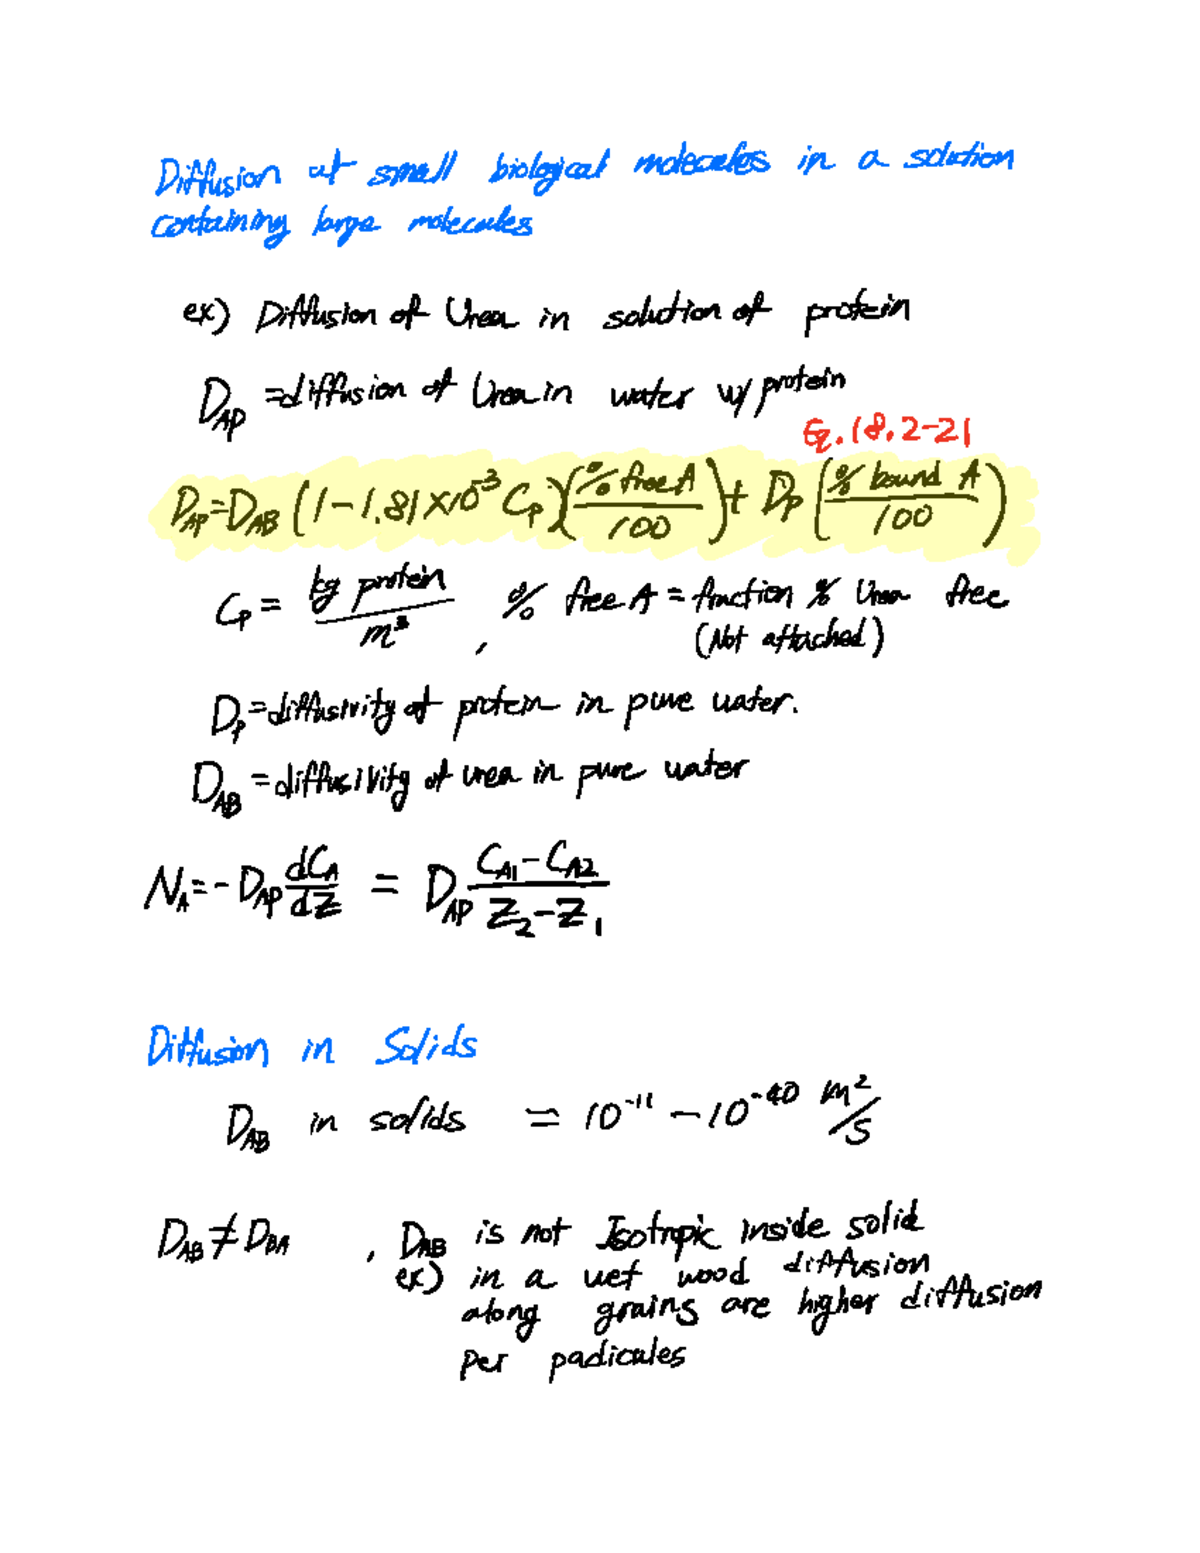 Diffusion of small biological molecules in a solution
containing large molecules
ex) Diffusion of Urea in solution of protein
D_AP = diffusion of Urea in water w/ protein
Eq. 18.2-21
D_AP = D_AB (1 - 1.81 × 10^-3 C_P)(% free A / 100) + D_P (% bound A / 100)
C_P = kg protein / m^3 , % free A = fraction % Urea free
(Not attached)
D_P = diffusivity of protein in pure water.
D_AB = diffusivity of urea in pure water
N_A = - D_AP dC_A/dZ = D_AP (C_A1 - C_A2)/(Z_2 - Z_1)
Diffusion in Solids
D_AB in solids = 10^-11 - 10^-40 m^2/s
D_AB ≠ D_BA , D_AB is not Isotropic inside solid
ex) in a wet wood diffusion
along grains are higher diffusion
per padicules